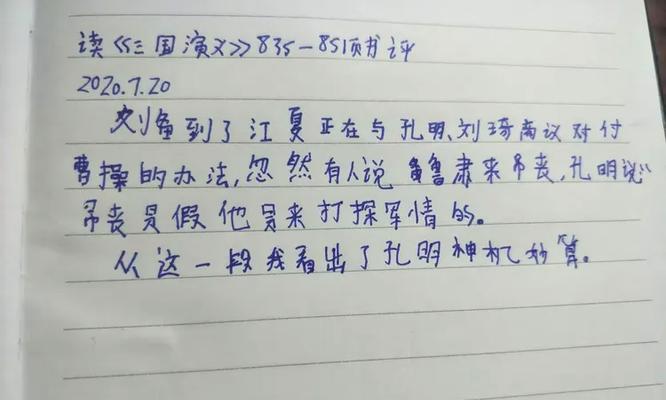 读《三国演义》835-851页书评
2020.7.20
刘备到了江夏正在与孔明、刘琦商议对付
曹操的办法,忽然有人说鲁肃来吊丧,孔明说"
吊丧是假他是来打探军情的。
从这一段我看出了孔明神机妙算。